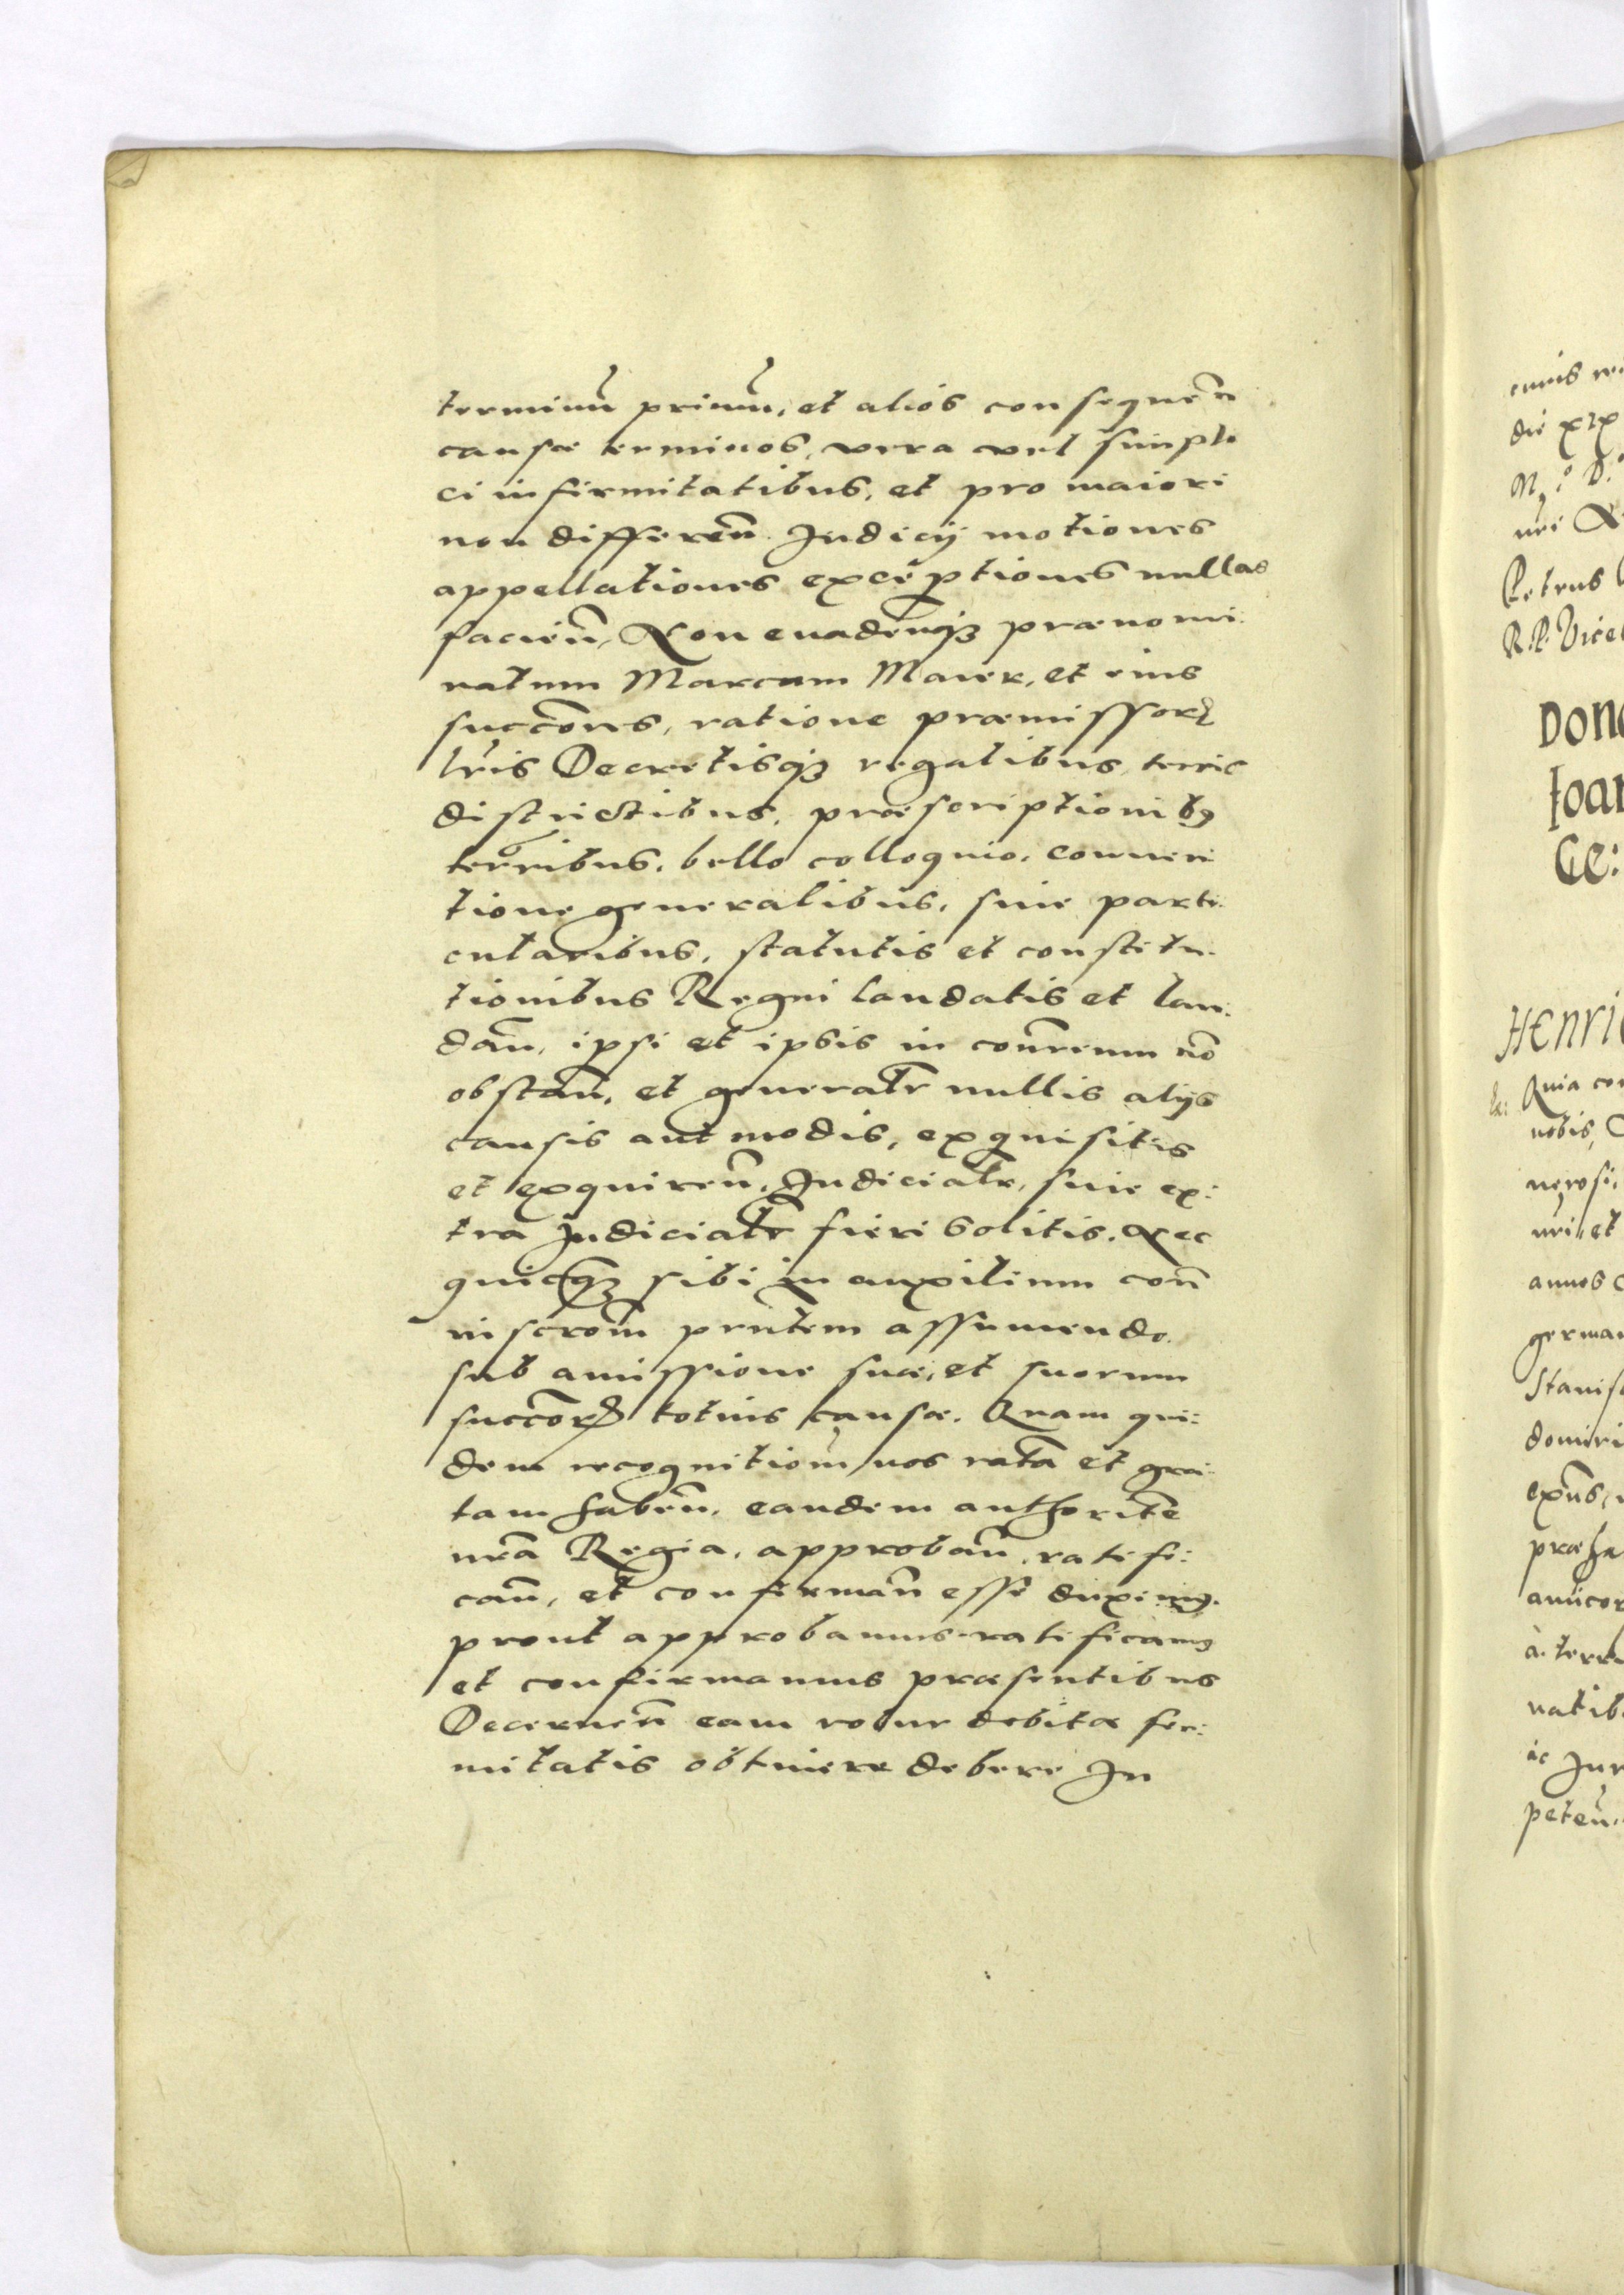 terminū primū, et alios consequēn
causæ terminos, vera vel simpli
ci infirmitatibus, et pro maiori
non differen̄ Judicij motiones
appellationes exceptiones nullas
facien̄, Non evaden̄q₃ prænomi:
natum Marcum Maier, et eius
succ̄ores, ratione præmissorꝝ
l̄ris Decretisq₃ regalibus, terric
districtibus, præscriptionibꝰ
terr̄ribus, bello colloquio, conven
tione generalibus, sive parti:
cularibus, statutis et constitu:
tionibus Regni laudatis et lau:
dan̄, ipsi et ipsis in con̄rium nō
obstan̄, et general̄r nullis alijs
causis aut modis, exquisitis
et exquiren̄, Judicial̄r, sive ex:
tra Judicial̄r fieri solitis, Nec
quicq₃ sibi in auxilium con̄
inscr̄om pn̄tem assumendo
sub amissione suæ, et suorum
succ̄orꝝ totius causæ. Quam qui:
dem recognitionū nos ratā et gra:
tam haben̄, eandem authorit̄e
nr̄a Regia, approban̄, ratifi:
can̄, et confirman̄ esse duximꝰ.
prout approbamus ratificamꝰ
et confirmamus præsentibus
Decernen̄ eam robur debitæ fir:
mitatis obtinere debere In
die xix
Petrus
R.P. Vicec
DON
Joan
HENRI
Quia con
nobis,
nerosi,
nri, et
annos
german
Stanis
domini
præfa
amicor
à terr
natib
ac Jur
peten̄